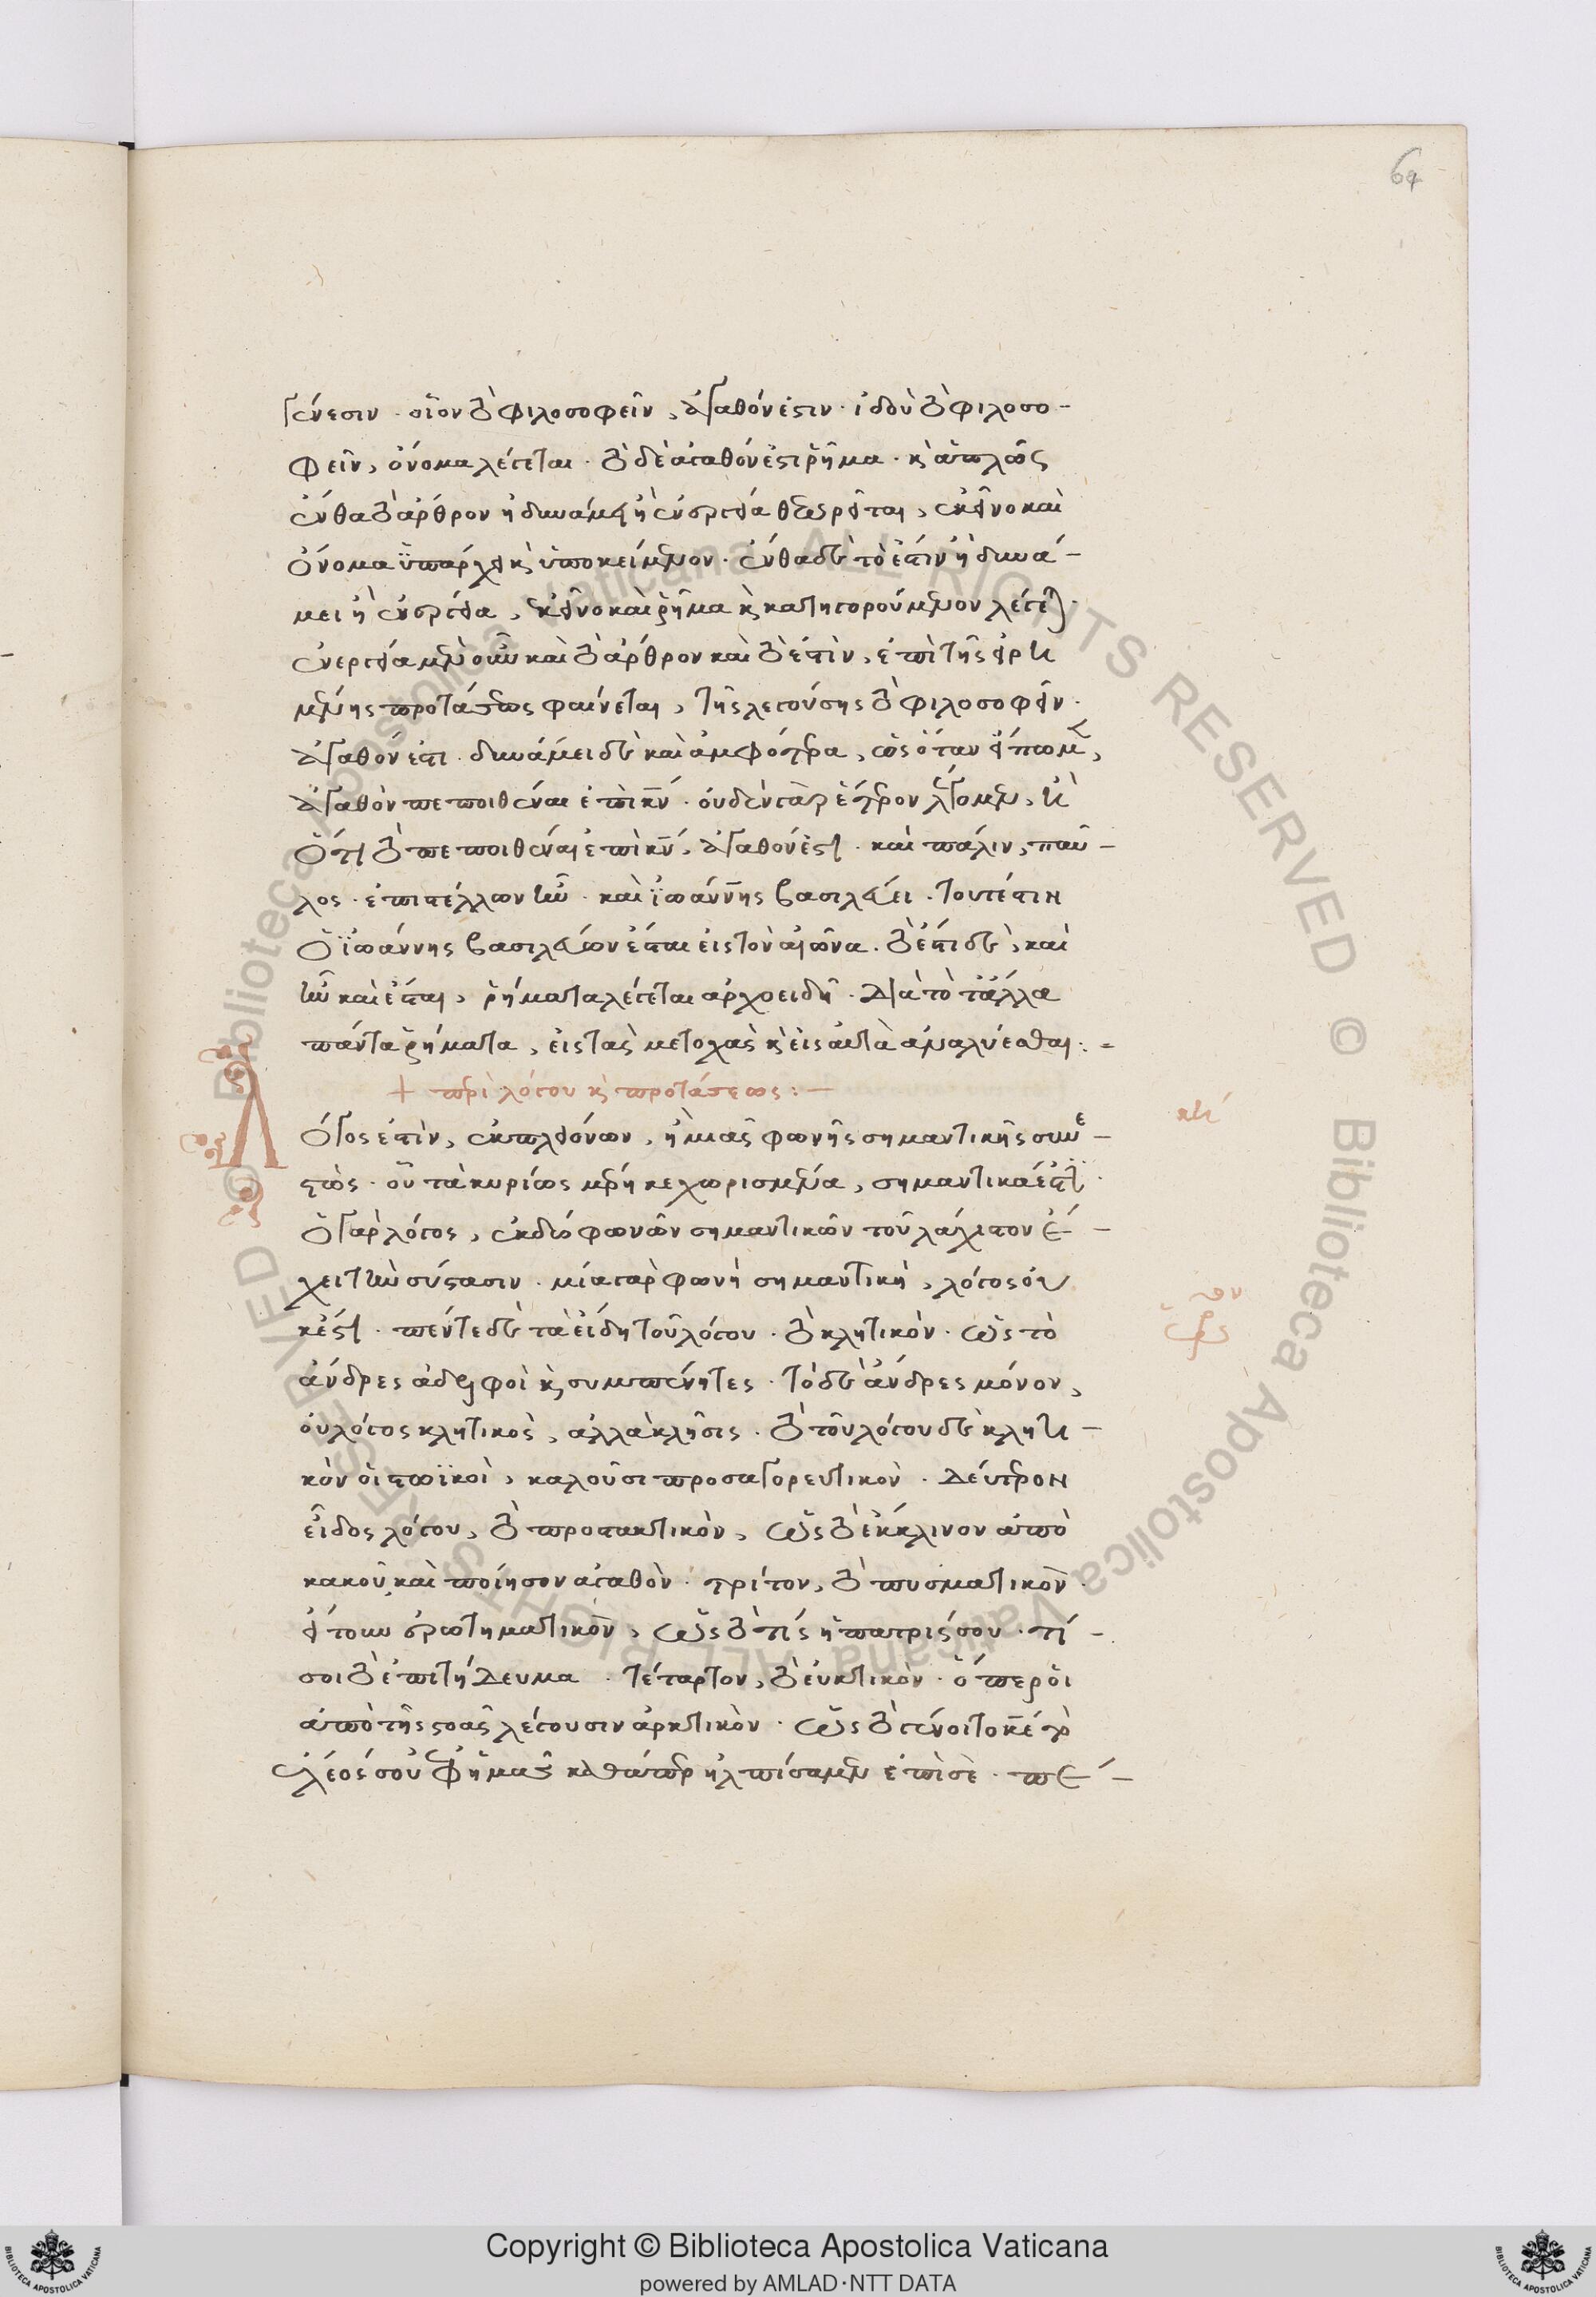 64
γένεσιν · οἷον τὸ φιλοσοφεῖν, ἀγαθόν ἐστιν · ἰδοὺ τὸ φιλοσο-
φεῖν, ὄνομα λέγεται · τὸ δὲ ἀγαθόν ἐστι ῥῆμα · κ(αὶ) ἁπλῶς
ἔνθα τὸ ἄρθρον ἢ δυνάμει ἢ ἐνεργεία θεωρεῖται, ἐκεῖνο καὶ
ὄνομα ὑπάρχει κ(αὶ) ὑποκείμενον · ἔνθα δὲ τὸ ἐστὶν ἢ δυνά-
μει ἢ ἐνεργεία, ἐκεῖνο καὶ ῥῆμα κ(αὶ) κατηγορούμενον λέγεται ·
ἐνεργεία μὲν οὖν καὶ τὸ ἄρθρον καὶ τὸ ἐστὶν, ἐπὶ τῆς εἰρη
μένης προτάσεως φαίνεται, τῆς λεγούσης τὸ φιλοσοφεῖν ·
ἀγαθόν ἐστι · δυνάμει δὲ καὶ ἀμφότερα, ὡς ὅταν εἴπωμεν,
ἀγαθὸν πεποιθέναι ἐπὶ κ(ύριο)ν · οὐδὲν γὰρ ἕτερον λέγομεν, ἢ
ὅτι τὸ πεποιθέναι ἐπὶ κ(ύριο)ν, ἀγαθόν ἐστι · καὶ πάλιν, παῦ-
λος · ἐπιστέλλων ἦν · καὶ ἰωάννης βασιλεύει · τουτέστιν
ὁ ἰωάννης βασιλεύων ἔσται εἰς τὸν αἰῶνα · τὸ ἐστι δὲ, καὶ
ἦν καὶ ἔσται, ῥήματα λέγεται ἀρχοειδῆ · διὰ τὸ τἄλλα
πάντα ῥήματα, εἰς τὰς μετοχὰς κ(αὶ) εἰς αὐτὰ ἀναλύεσθαι :-
+ περὶ λόγου κ(αὶ) προτάσεως :-
Λόγος ἐστὶν, ἐκ πλειόνων, ἢ μιᾶς φωνῆς σημαντικῆς συνε-
στὼς · οὗ τὰ κυρίως μέρη κεχωρισμένα, σημαντικά ἐστι ·
ὁ γὰρ λόγος, ἐκ δύο φωνῶν σημαντικῶν τοὐλάχιστον ἔ-
χει τὴν σύστασιν · μία γὰρ φωνὴ σημαντικὴ, λόγος οὐ
κἔστι · πέντε δὲ τὰ εἴδη τοῦ λόγου · τὸ κλητικὸν · ὡς τὸ
ἄνδρες ἀδελφοὶ κ(αὶ) συμπένητες · τὸ δὲ ἄνδρες μόνον,
οὐ λόγος κλητικὸς, ἀλλὰ κλῆσις · τὸ τοῦ λόγου δὲ κλητι-
κὸν οἱ στωϊκοὶ, καλοῦσι προσαγορευτικὸν · δεύτερον
εἶδος λόγου, τὸ προστακτικὸν, ὡς τὸ ἔκκλινον ἀπὸ
κακοῦ καὶ ποίησον ἀγαθὸν · τρίτον, τὸ πυσματικὸν ·
εἴτουν ἐρωτηματικὸν, ὡς τὸ τίς ἡ πατρίς σου · τί -
σοι τὸ ἐπιτήδευμα · τέταρτον, τὸ εὐκτικὸν · ὅπερ οἱ
ἀπὸ τῆς στοᾶς λέγουσιν ἀρκτικὸν · ὡς τὸ γένοιτο κ(ύρι)ε τὸ
ἔλεός σου ἐφ' ἡμᾶς καθάπερ ἠλπίσαμεν ἐπὶ σὲ · πέ-
Copyright © Biblioteca Apostolica Vaticana
powered by AMLAD·NTT DATA